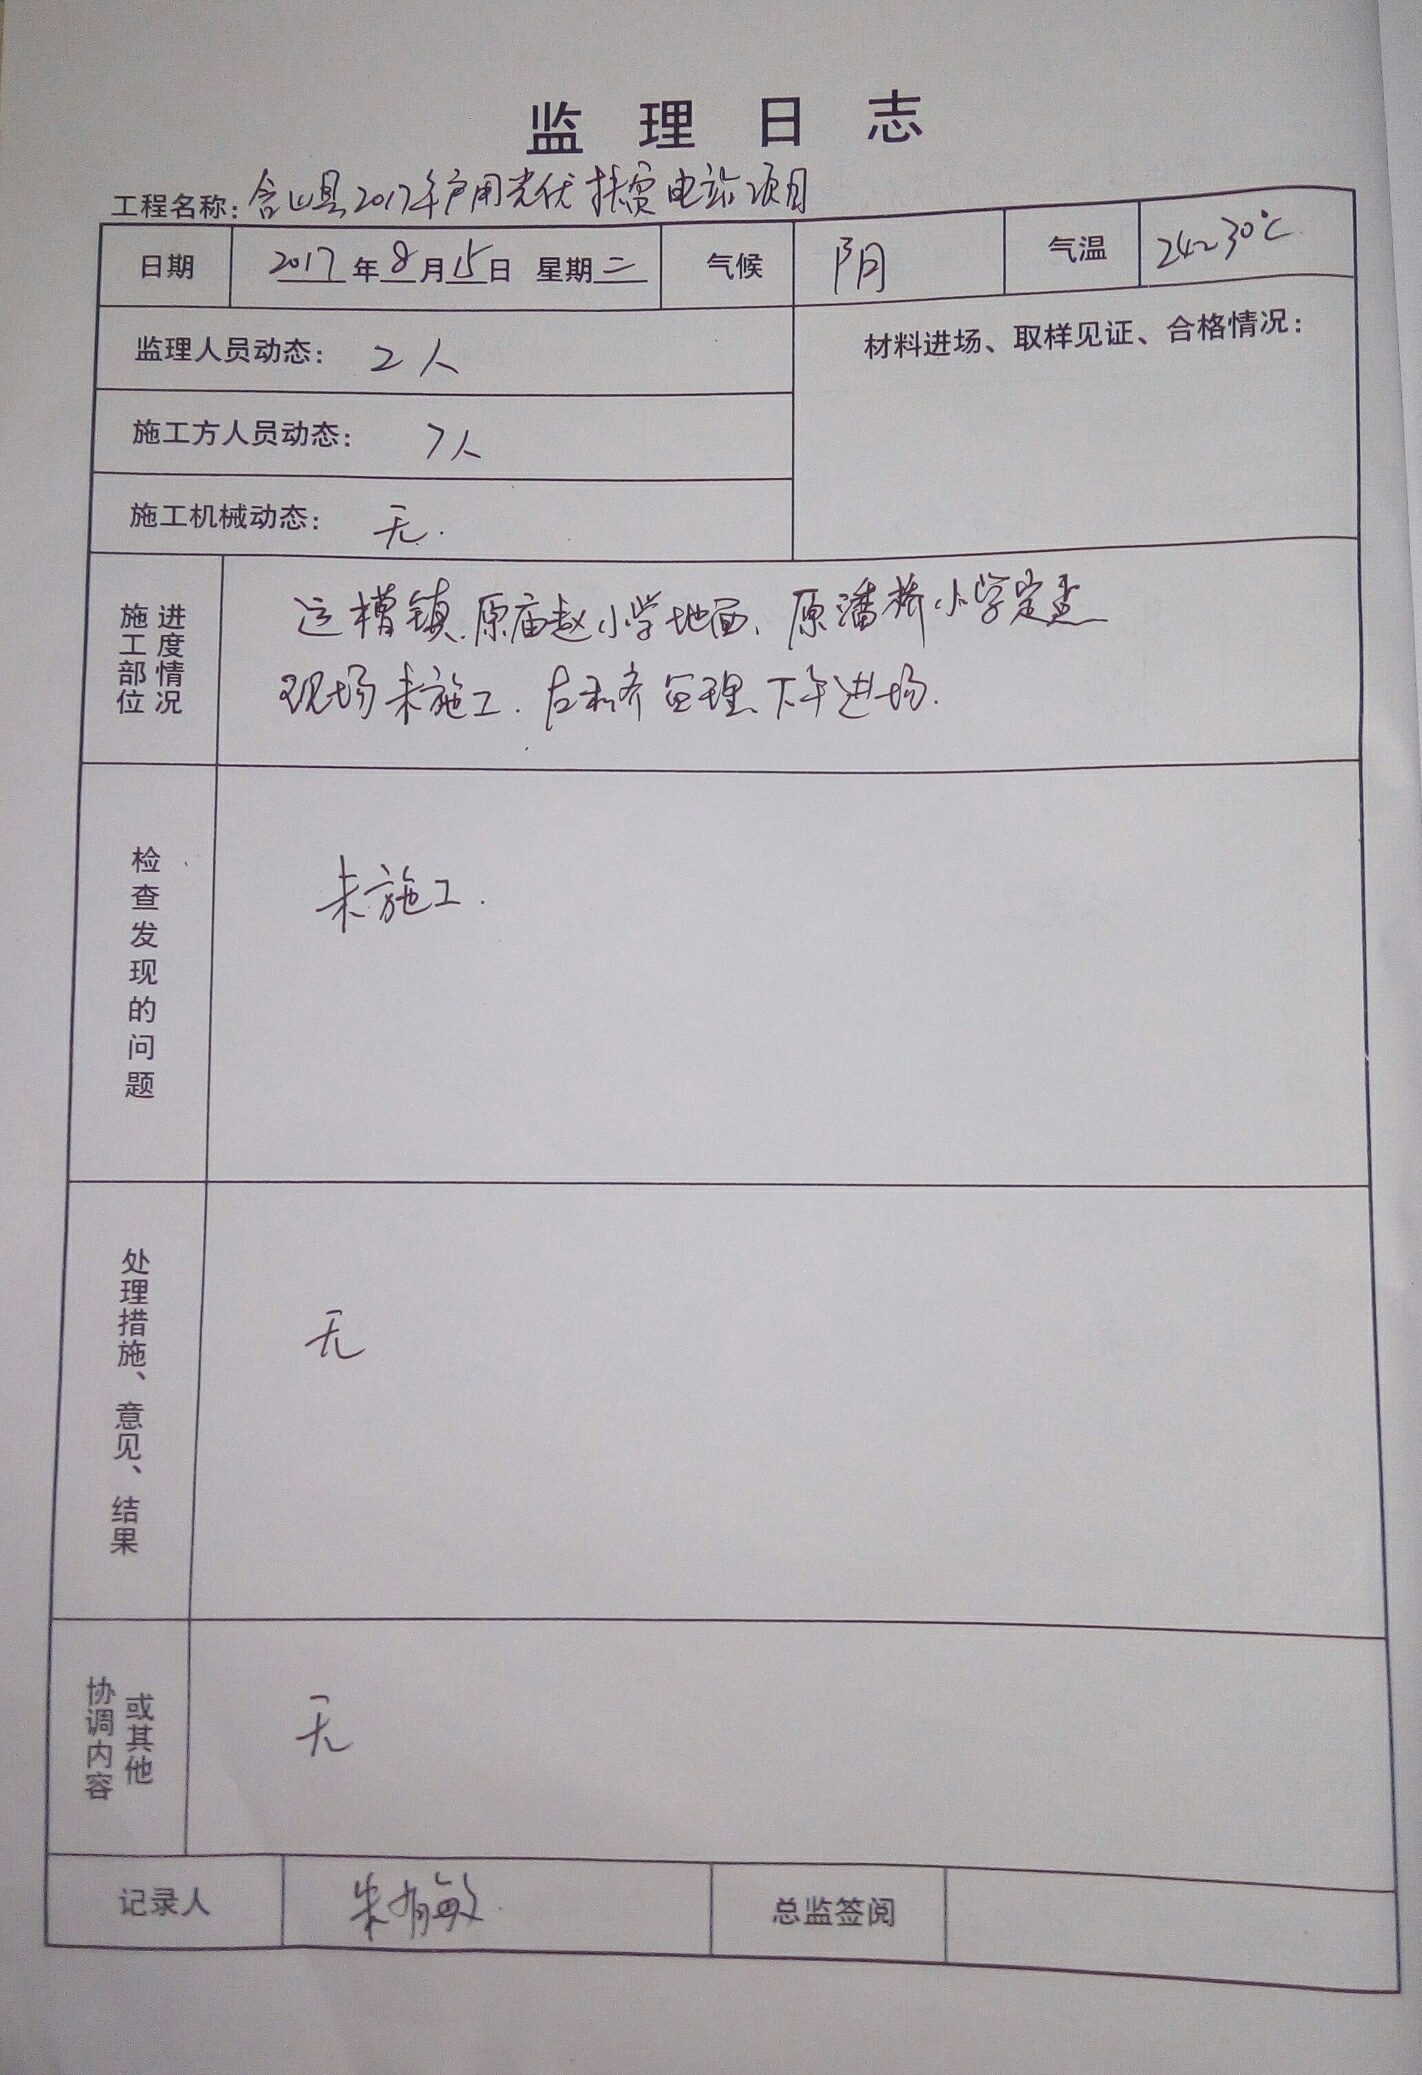 监理日志
工程名称：含山县2017年户用光伏扶贫电站项目
日期 2017年8月15日 星期二 气候 阴 气温 24~30℃
监理人员动态：2人
材料进场、取样见证、合格情况：
施工方人员动态：7人
施工机械动态：无.
施工部位 进度情况
运漕镇、原庙赵小学地面、原潘桥小学
现场未施工. 监理、下午进场.
检查发现的问题
未施工.
处理措施、意见、结果
无
协调内容 或其他
无
记录人 朱有敏 总监签阅